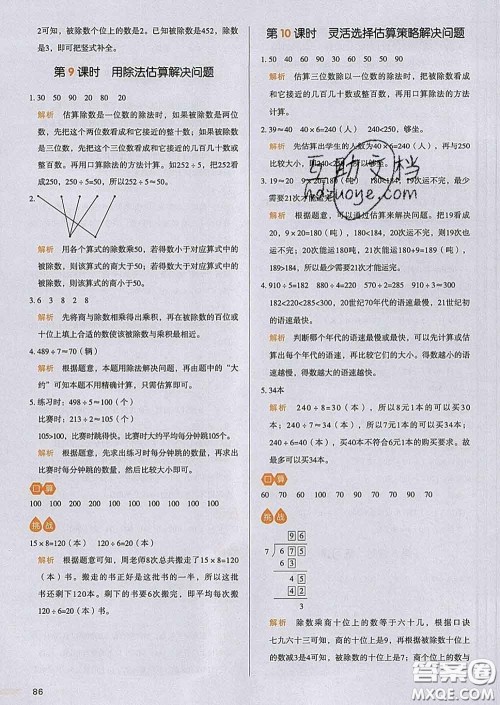 2可知，被除数个位上的数是2。已知被除数、除数，即可把竖式补全。
第9课时 用除法估算解决问题
1. 30 50 90 20 80 20
解析 估算除数是一位数的除法时，如果被除数是两位
数，先把这个两位数看成和它接近的整十数；如果被除
数是三位数，先把这个三位数看成和它接近的几百几十
数或整百数，再用口算除法的方法计算。如252÷5，把252看
成250，250÷5=50，所以252÷5≈50。
2.
解析 用各个算式的除数乘50，若得数小于对应算式中的
被除数，则该算式的商大于50；若得数大于对应算式中的
被除数，则该算式的商小于50。
3. 6 3 8 2 8
解析 先将商与除数相乘得出乘积，再在被除数的百位或
十位上填上合适的数使该被除数与乘积最相近。
4. 489÷7≈70（辆）
解析 根据题意，本题用除法解决问题，再由题中的“大
约”可知本题不用精确计算，只需估算即可。
5. 练习时：498÷5≈100（个）
比赛时：213÷2≈105（个）
105>100，比赛时跳得快。比赛时大约平均每分钟跳105个。
解析 根据题意，先求出练习时每分钟跳的数量，再求出
比赛时每分钟跳的数量，然后比较大小即可。
口算
100 100 100 100 100 100 100 100
挑战
15×8=120（本） 120÷6=20（本）
解析 根据题意可知，周老师8次总共搬走了15×8=120
（本）书。搬走的本数正好比剩下的本数多120本，所以
书还剩下120本。剩下的书要6次搬完，即平均每次搬
120÷6=20（本）书。
86
第10课时 灵活选择估算策略解决问题
1. 50 40 60 90 60 70 80 90
解析 估算三位数除以一位数的除法时，把被除数看成
和它接近的几百几十数或整百数，再用口算除法的方法
计算。
2. 39≈40 40×6=240（人） 240<250，够坐。
解析 先估算出学生的人数为40×6=240（人），再与250
比较大小，
互助文档
hdzuoye.com
解析 根据题意，可以通过估算来解决问题。把19看成
20，20次能运180吨，181>180，所以20次运不完；19看成
189>184，所以只需要21次才能运完。
182<220<285，20世纪70年代的语速最慢，21世纪初
的语速最快。
解析 判断哪个年代的语速最慢或最快，先计算或估算
出每个年代的语速，再比较它们的大小。得数最小的语
速最慢，得数最大的语速最快。
5. 34本
解析 240÷8=30（本），所以8元1本的可以买30
本；240÷7≈34（本），所以7元1本的可以买34本；
240÷6=40（本），买40本不符合6元1本的优惠条件。
所以最多可以买34本。
口算
60 60 70 90 100 90 100 70
挑战
96
7 675
63
45
42
3
解析 除数乘商十位上的数等于六十几，根据口诀
七九六十三可知，商的十位上是9，再根据十位上的
数减3是4可知，被除数的十位上是7；商个位上的数与
答案圈
MXQE.COM